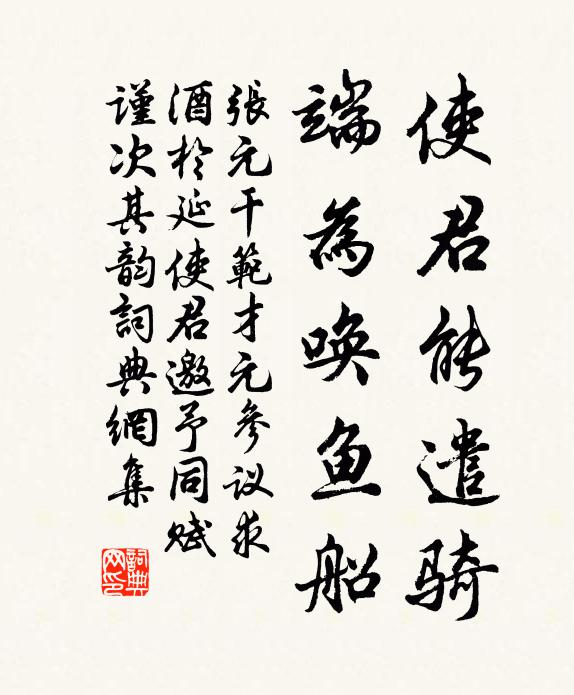 使君能遣骑
端為唤鱼船
張元干範才元参议求
酒於延使君邀予同赋
谨次其韵詞典網集
詞典网印